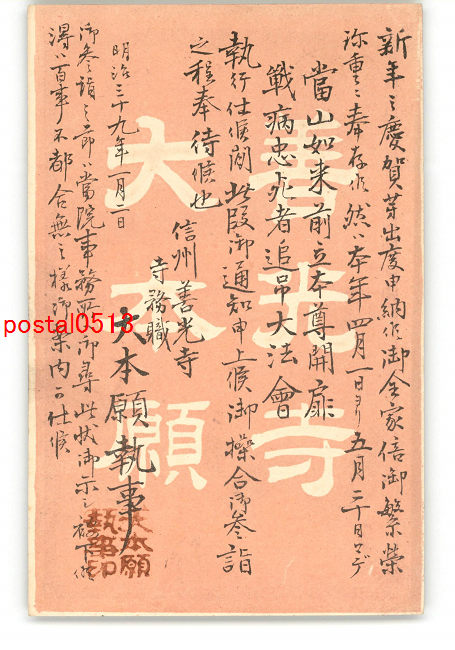 新年之慶賀芽出度申納候御全家倍御繁榮
弥重ニ奉存候然ハ本年四月一日ヨリ五月三十日マデ
當山如来前立本尊開扉
戰病忠死者追吊大法會
執行仕候間此段御通知申上候御操合御参詣
之程奉待候也
信州善光寺
寺務職
大本願執事
明治三十九年一月一日
御参詣之節ハ當院事務所へ御尋此状御示し被下候
得ハ百事不都合無之様御案内可仕候
善光寺
大本願
大本願
執事印
postal0513